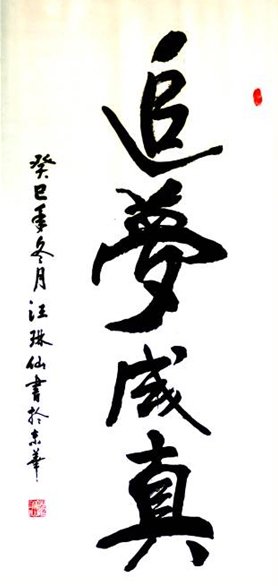 追夢成真
癸巳年冬月汪珠仙書於京華